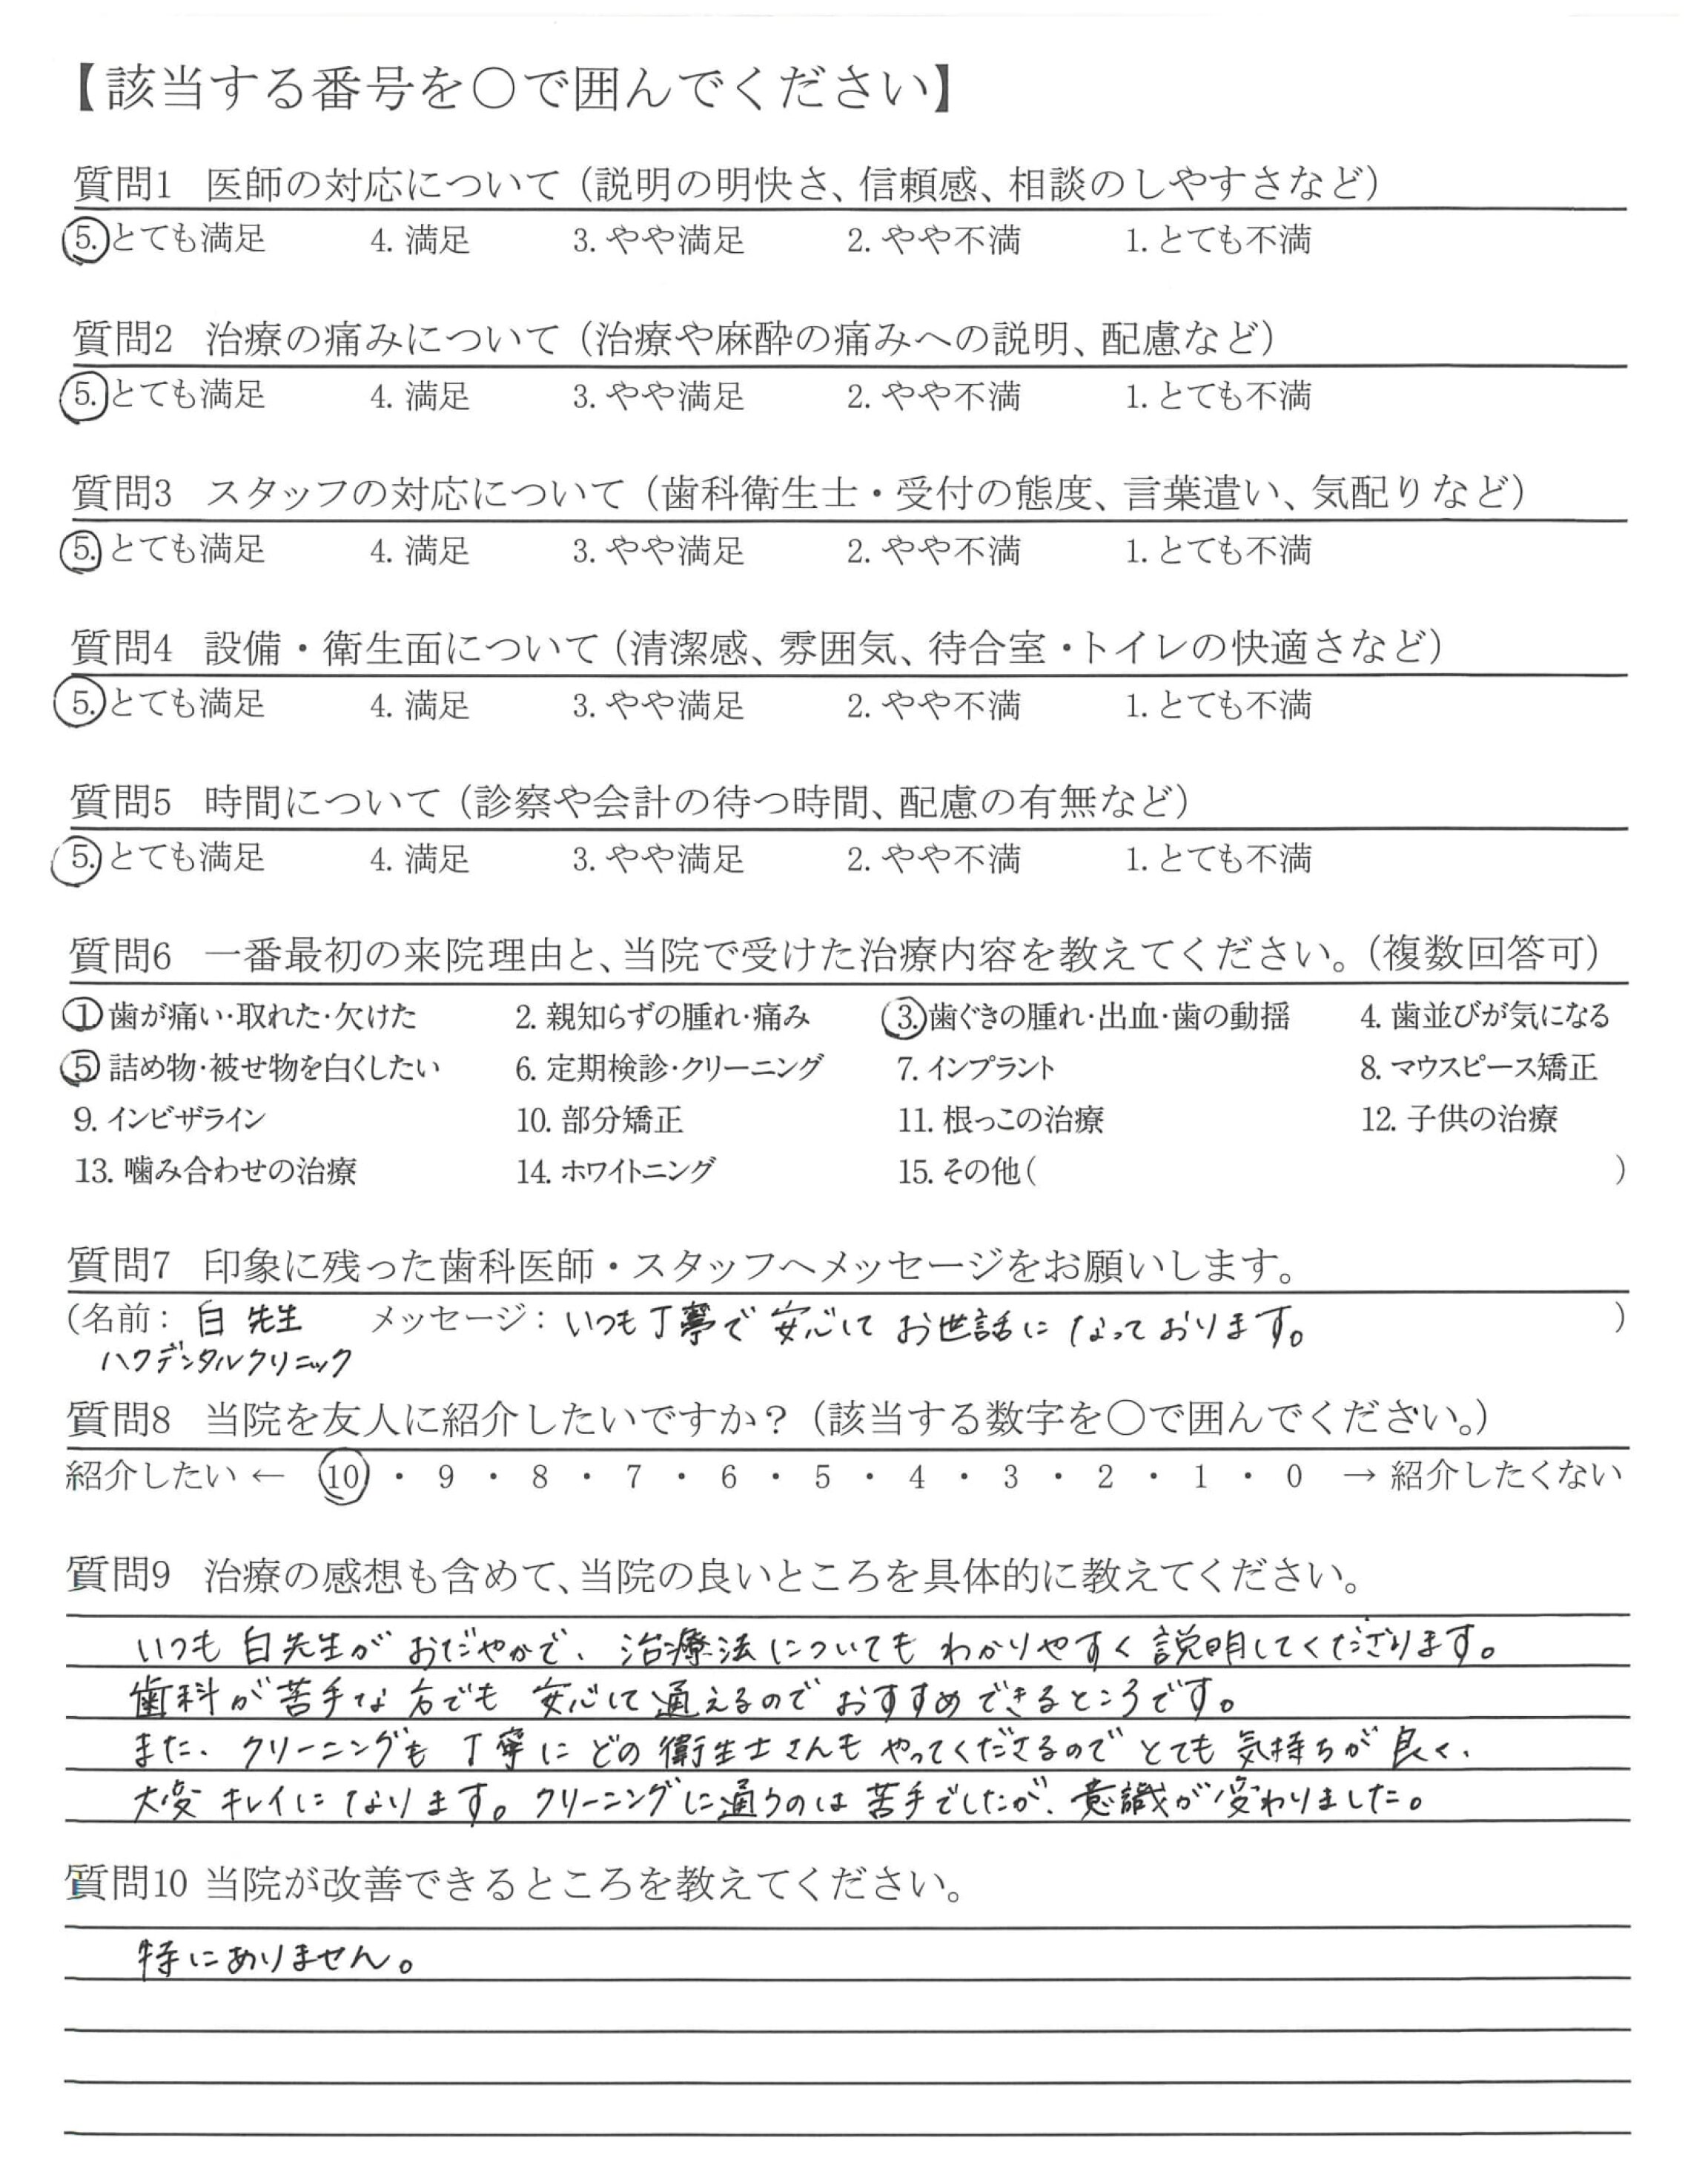 【該当する番号を〇で囲んでください】
質問1 医師の対応について（説明の明快さ、信頼感、相談のしやすさなど）
5. とても満足 4. 満足 3. やや満足 2. やや不満 1. とても不満
質問2 治療の痛みについて（治療や麻酔の痛みへの説明、配慮など）
5. とても満足 4. 満足 3. やや満足 2. やや不満 1. とても不満
質問3 スタッフの対応について（歯科衛生士・受付の態度、言葉遣い、気配りなど）
5. とても満足 4. 満足 3. やや満足 2. やや不満 1. とても不満
質問4 設備・衛生面について（清潔感、雰囲気、待合室・トイレの快適さなど）
5. とても満足 4. 満足 3. やや満足 2. やや不満 1. とても不満
質問5 時間について（診察や会計の待つ時間、配慮の有無など）
5. とても満足 4. 満足 3. やや満足 2. やや不満 1. とても不満
質問6 一番最初の来院理由と、当院で受けた治療内容を教えてください。（複数回答可）
1 歯が痛い・取れた・欠けた 2. 親知らずの腫れ・痛み 3. 歯ぐきの腫れ・出血・歯の動揺 4. 歯並びが気になる
5 詰め物・被せ物を白くしたい 6. 定期検診・クリーニング 7. インプラント 8. マウスピース矯正
9. インビザライン 10. 部分矯正 11. 根っこの治療 12. 子供の治療
13. 噛み合わせの治療 14. ホワイトニング 15. その他（ ）
質問7 印象に残った歯科医師・スタッフへメッセージをお願いします。
（名前： 白 先生 メッセージ： いつも丁寧で 安心して お世話に なっております。 ）
ハクデンタルクリニック
質問8 当院を友人に紹介したいですか？（該当する数字を〇で囲んでください。）
紹介したい ← 10 ・ 9 ・ 8 ・ 7 ・ 6 ・ 5 ・ 4 ・ 3 ・ 2 ・ 1 ・ 0 → 紹介したくない
質問9 治療の感想も含めて、当院の良いところを具体的に教えてください。
いつも 白先生が おだやかで、治療法についても わかりやすく 説明してくださります。
歯科が苦手な方でも 安心して通えるのでおすすめできるところです。
また、クリーニングも 丁寧に どの衛生士さんも やってくださるので とても 気持ちが 良く、
大変 キレイに なります。クリーニングに通うのは 苦手でしたが、意識が変わりました。
質問10 当院が改善できるところを教えてください。
特にありません。